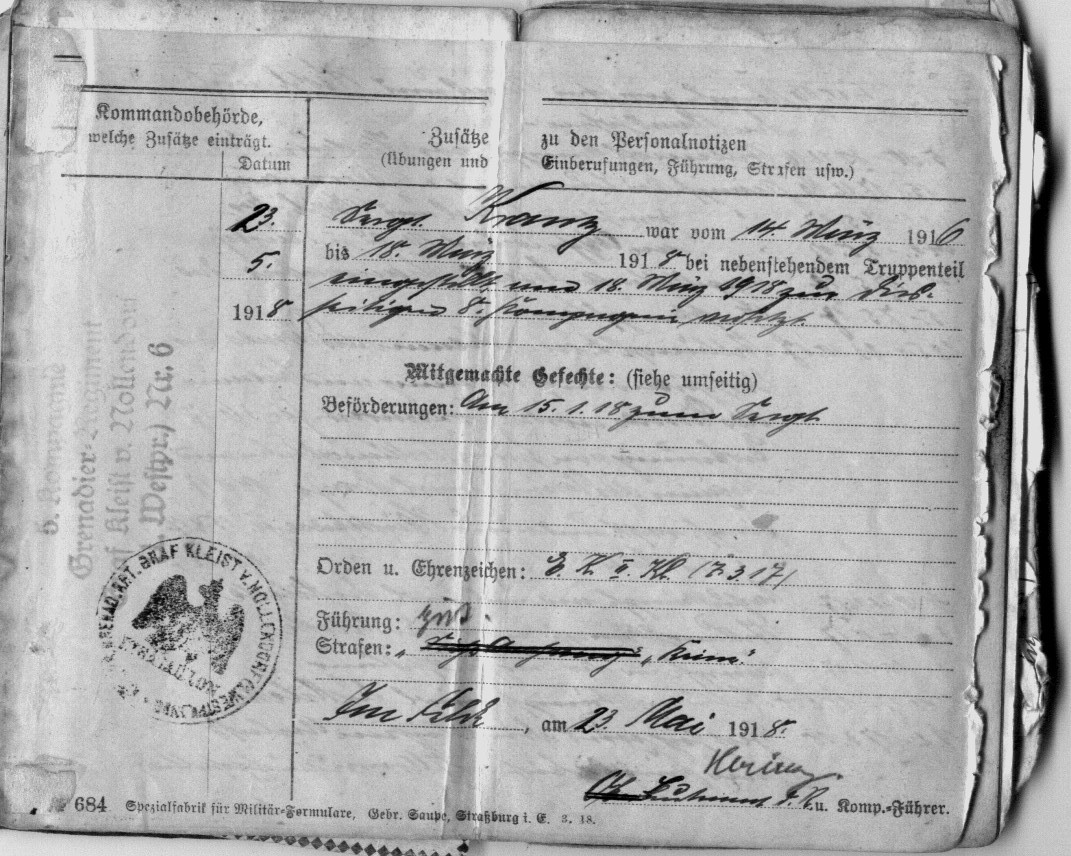 Kommandobehörde,
welche Zusätze einträgt.
Datum
Zusätze zu den Personalnotizen
(Übungen und Einberufungen, Führung, Strafen usw.)
23. Sergt. Krantz war vom 14 März 1916
5. bis 18. März 1918 bei nebenstehendem Truppenteil
eingestellt und 18. März 1918 zur dies-
1918 seitigen 8. Kompagnie versetzt.
Mitgemachte Gefechte: (siehe umseitig)
Beförderungen: Am 15.1.18 zum Sergt.
Orden u. Ehrenzeichen: E. K. II. Kl. (7.3.17)
Führung: gut.
Strafen: „Keine“
Im Felde, am 23. Mai 1918.
Leutnant d. R. u. Komp.-Führer.
5. Kompagnie
Grenadier-Regiment
Graf Kleist v. Nollendorf
Westpr.) Nr. 6
GRENAD. RGT. GRAF KLEIST V. NOLLENDORF (1. WESTPR.) NR.
684 Spezialfabrik für Militär-Formulare, Gebr. Saupe, Straßburg i. E. 3. 18.